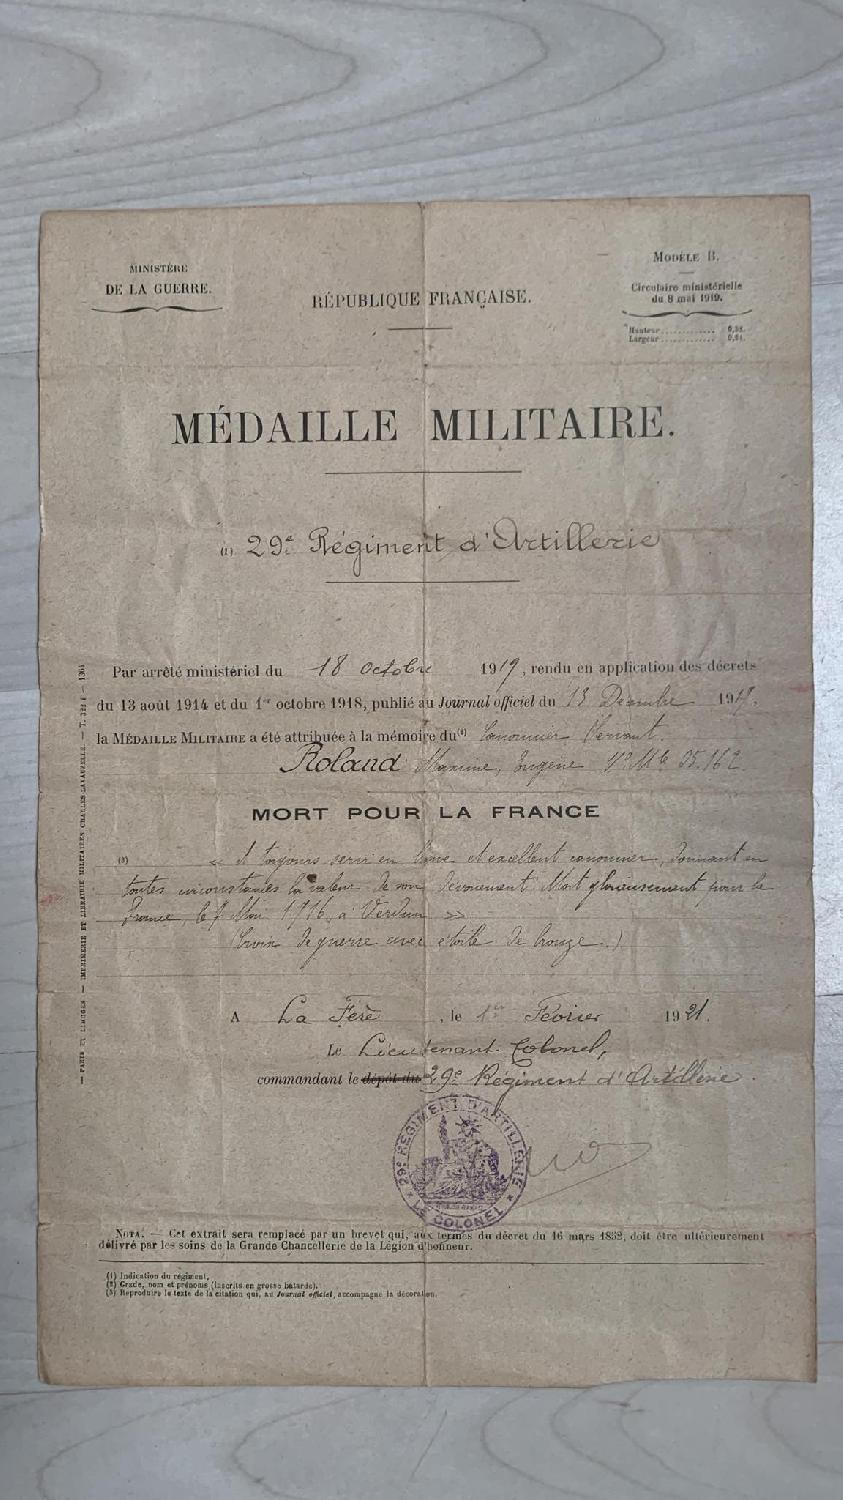 MINISTÈRE
DE LA GUERRE.
RÉPUBLIQUE FRANÇAISE.
MODÈLE B.
Circulaire ministérielle
du 8 mai 1919.
Hauteur
Largeur
MÉDAILLE MILITAIRE.
(1) 29e Régiment d'Artillerie
Par arrêté ministériel du 18 octobre 1919, rendu en application des décrets
du 13 août 1914 et du 1er octobre 1918, publié au Journal officiel du 18 Décembre 1919.
la MÉDAILLE MILITAIRE a été attribuée à la mémoire du Canonnier Servant.
Roland Maxime, Eugène No Mle 05.162
MORT POUR LA FRANCE
(3) « A toujours servi en brave et excellent canonnier, donnant en
toutes circonstances la valeur de son dévouement. Mort glorieusement pour la
France, le 9 Mai 1916, à Verdun »
(Croix de guerre avec étoile de bronze.)
A La Fère, le 1er Février 1921.
Le Lieutenant-Colonel,
commandant le dépôt du 29e Régiment d'Artillerie.
29e RÉGIMENT D'ARTILLERIE
LE COLONEL
NOTA. — Cet extrait sera remplacé par un brevet qui, aux termes du décret du 16 mars 1852, doit être ultérieurement
délivré par les soins de la Grande Chancellerie de la Légion d'honneur.
(1) Indication du régiment,
(2) Grade, nom et prénoms (inscrits en grosse bâtarde).
(3) Reproduire le texte de la citation qui, au Journal officiel, accompagne la décoration.
— PARIS ET LIMOGES. — IMPRIMERIE ET LIBRAIRIE MILITAIRES CHARLES-LAVAUZELLE. —